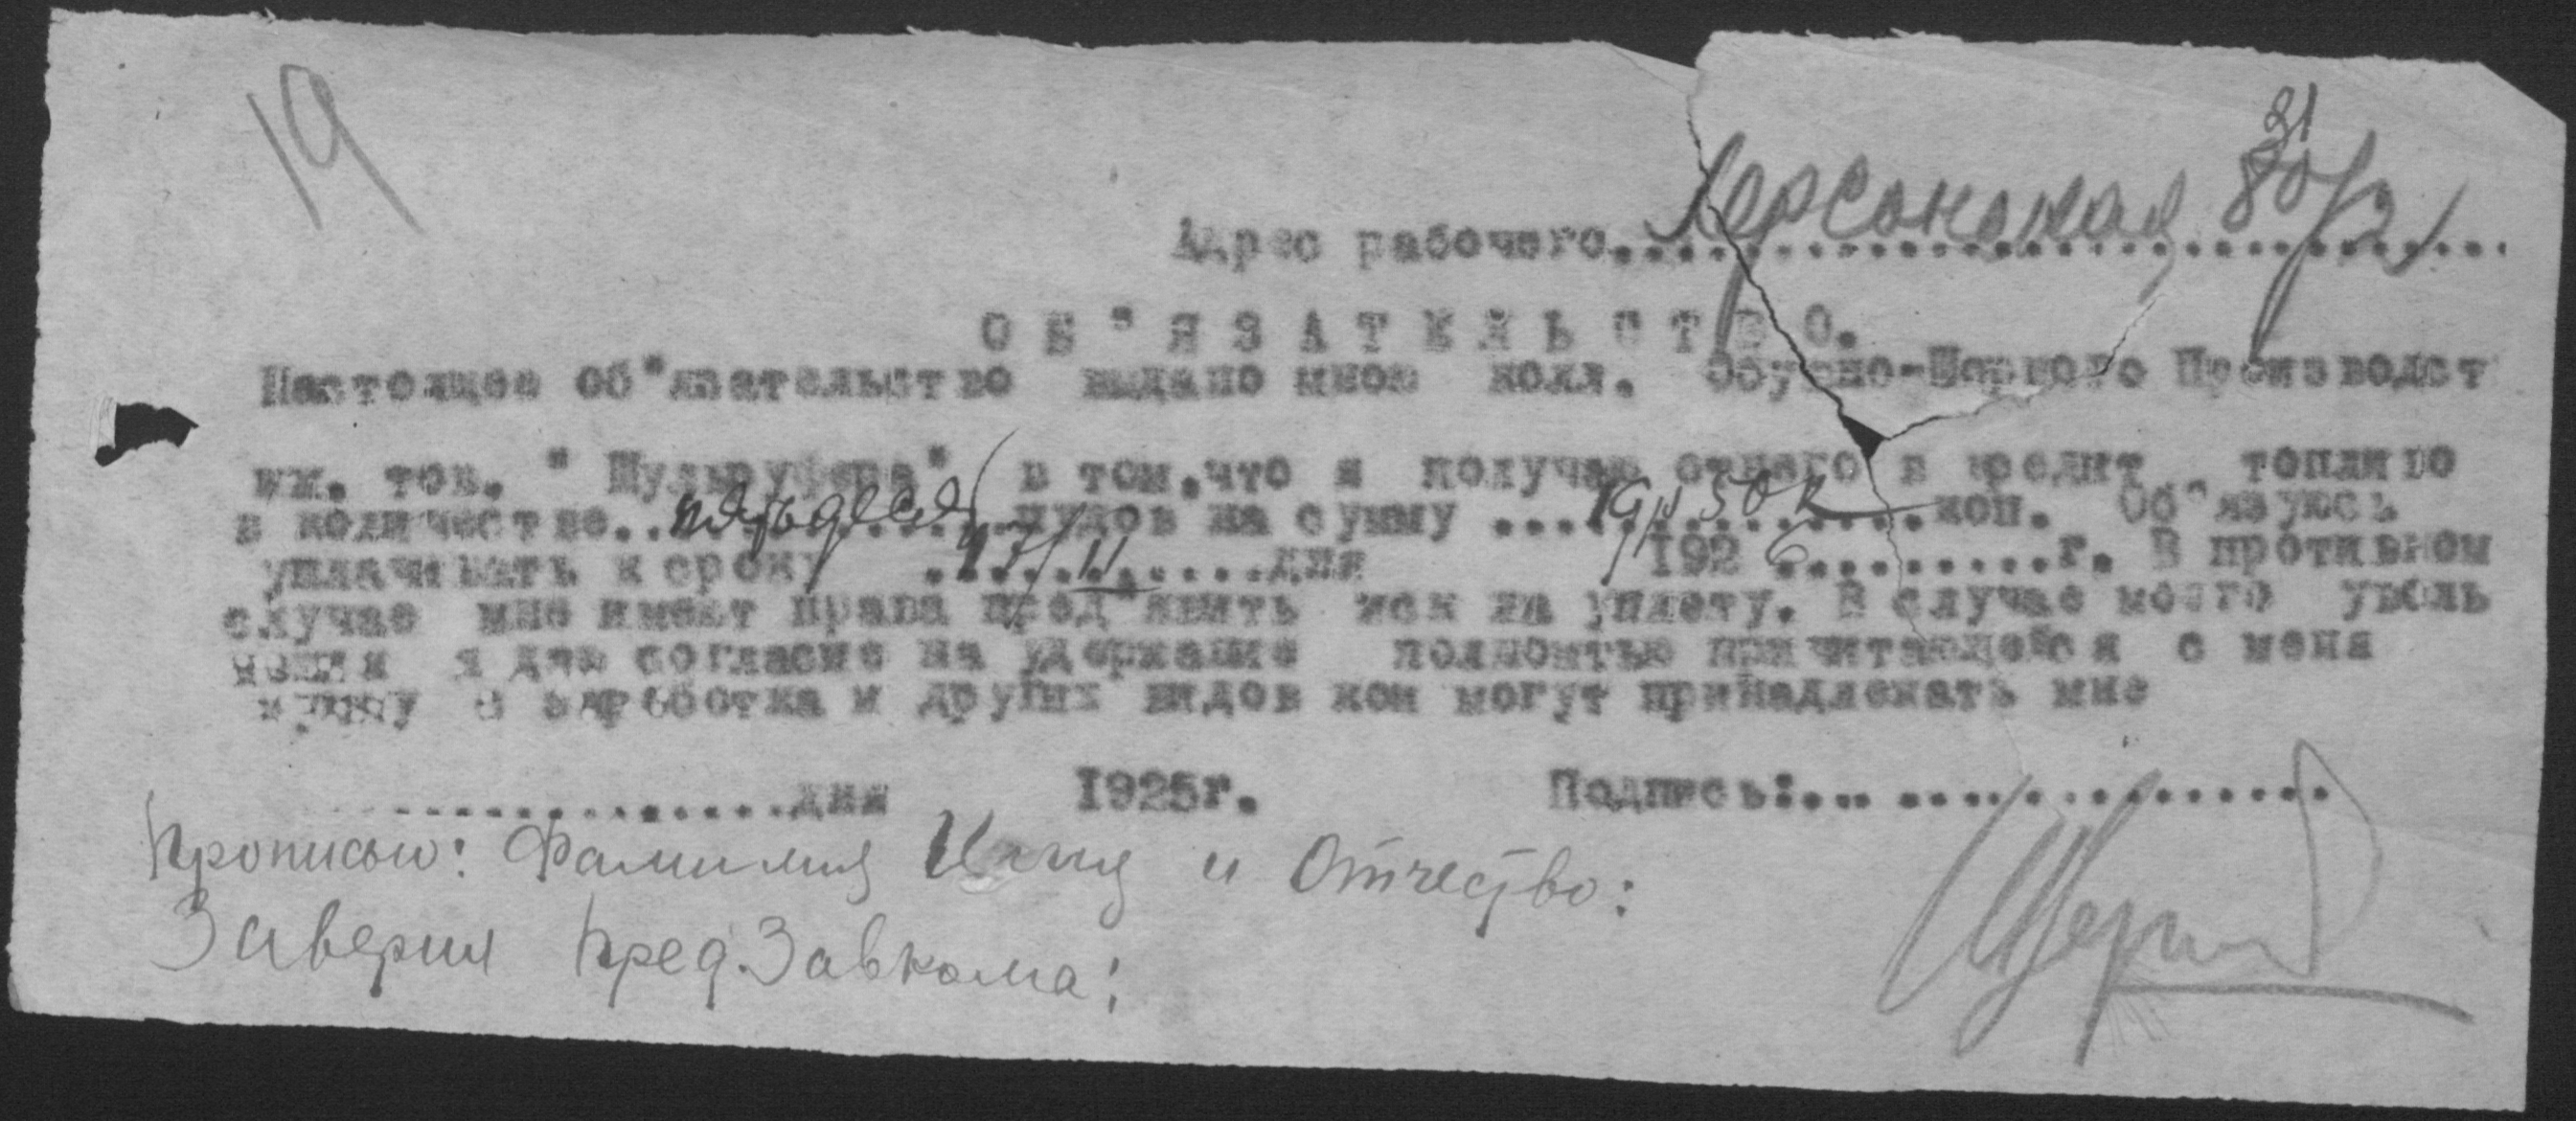 19
31
Адрес рабочего Херсонская 80/21
ОБ"ЯЗАТЕЛЬСТВО.
Настоящее об"язательство выдано мною колл. Обувно-Шорного Производст
им. тов. " " в том,что я получаю отнего в кредит топливо
в количестве пятьдесят пудов на сумму 19р 50к коп. Об"язуюсь
уплачивать к сроку 17/II дня 1926 г. В противном
случае мне имеют права пред"явить иск на уплату. В случае моего уволь
нения я даю согласие на удержание причитающейся с меня
сумму с заработка и других видов кои могут принадлежать мне
дня 1925г. Подпись:
Прописью: Фамилия Имя и Отчество:
Заверил Пред.Завкома: